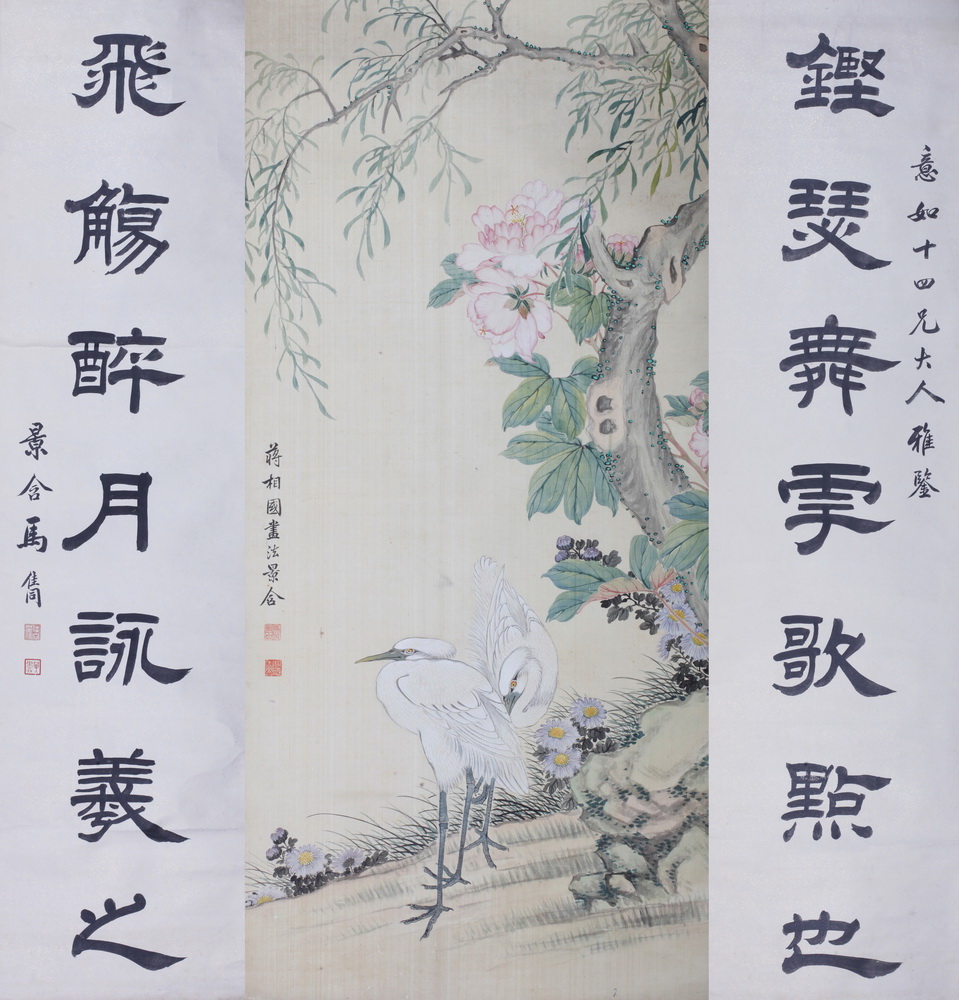 意如十四兄大人雅鑒
鏗瑟舞雩歌點也
蔣相國畫法景含
飛觴醉月詠羲之
景含馬雋